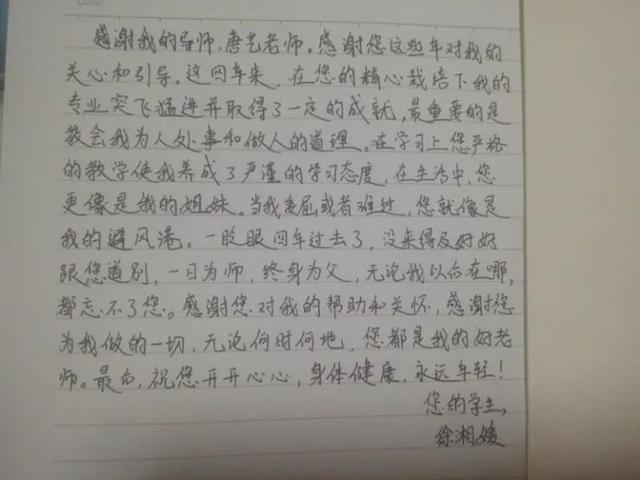 感谢我的导师，唐艺老师。感谢您这些年对我的
关心和引导。这四年来，在您的精心栽培下我的
专业突飞猛进并取得了一定的成就，最重要的是
教会我为人处事和做人的道理。在学习上您严格
的教学使我养成了严谨的学习态度，在生活中，您
更像是我的姐妹。当我委屈或者难过，您就像是
我的避风港。一眨眼四年过去了，没来得及好好
跟您道别，一日为师，终身为父，无论我以后在哪，
都忘不了您。感谢您对我的帮助和关怀，感谢您
为我做的一切，无论何时何地，您都是我的好老
师。最后，祝您开开心心，身体健康，永远年轻！
您的学生，
徐湘媛